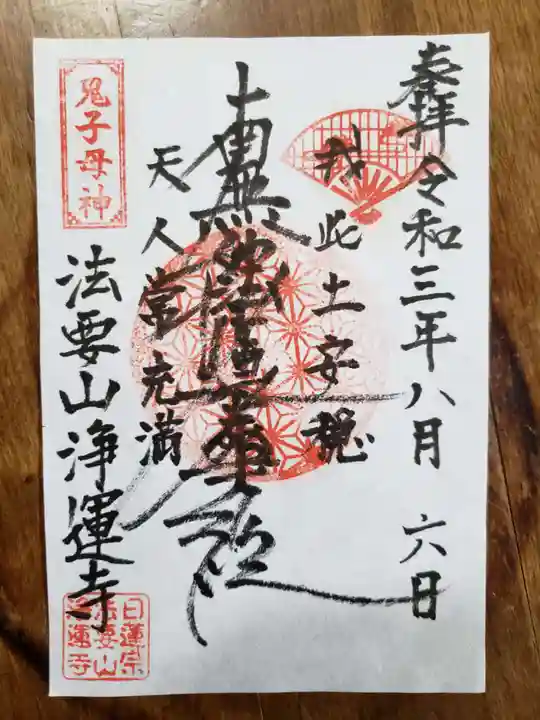 奉拝 令和三年八月 六日
我此土安穏
南無妙法蓮華経
天人常充満
鬼子母神
法要山浄運寺
日蓮宗
法要山
浄運寺